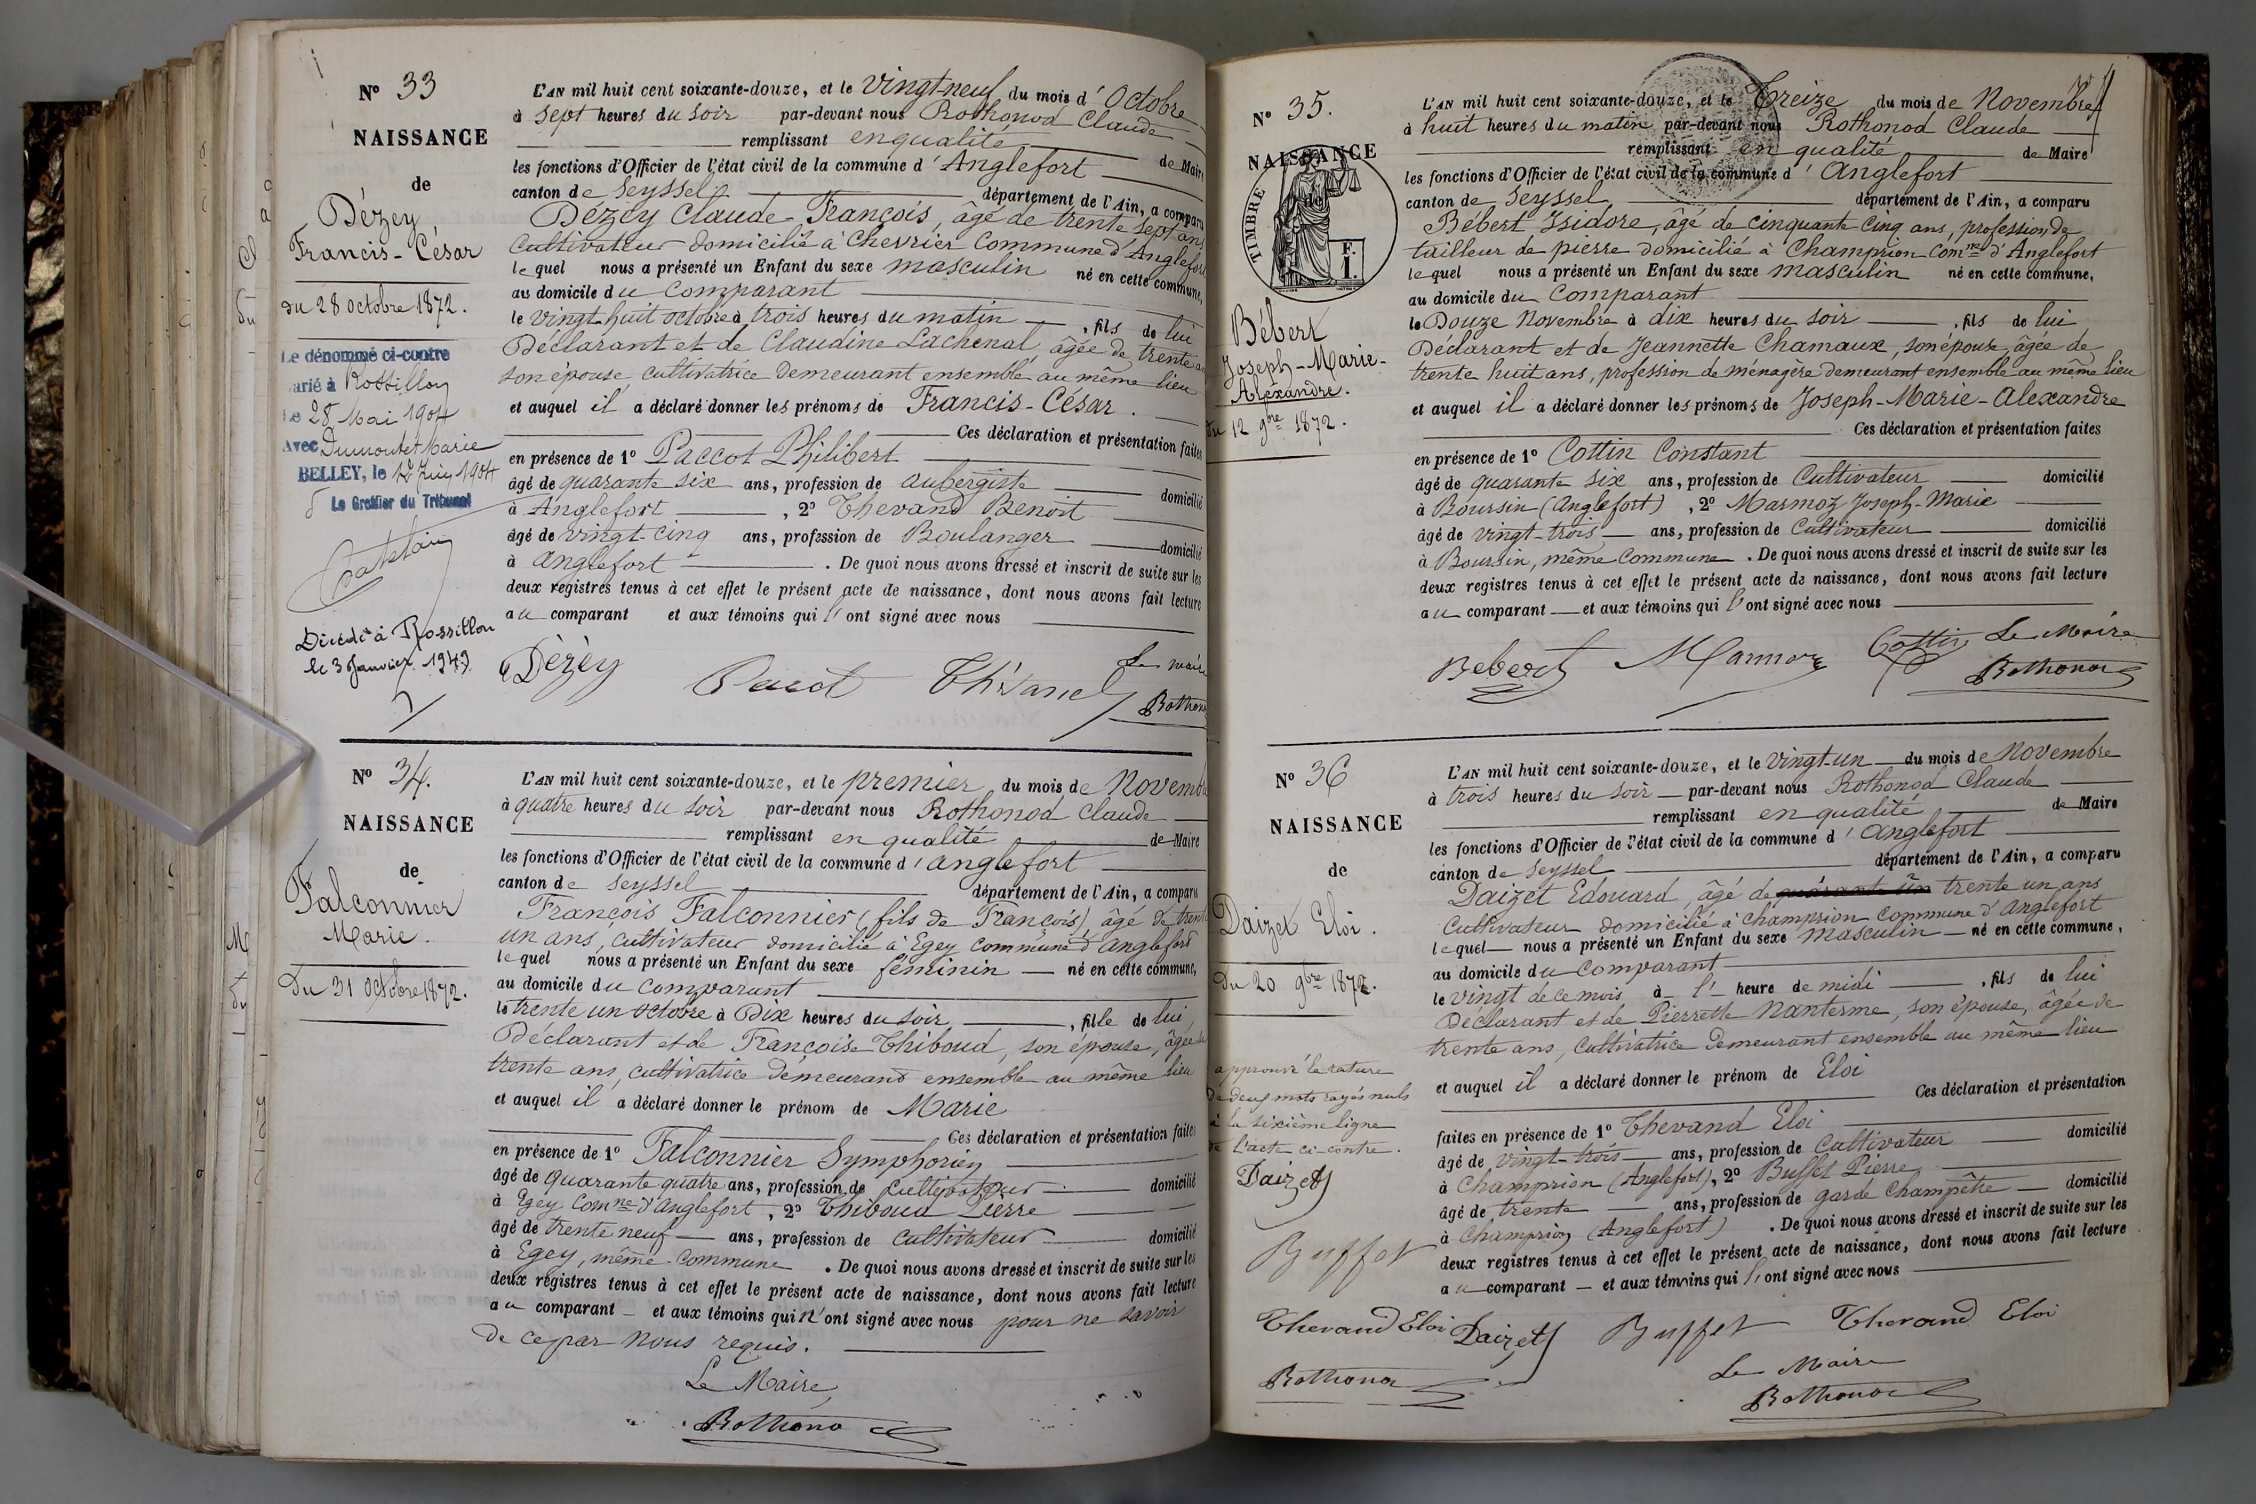 N° 33
NAISSANCE
de
Dézey
Francis-César
du 28 octobre 1872.
Le dénommé ci-contre
arié à Rossillon
Le 28 Mai 1904
Avec Dumoulet Marie
BELLEY, le Juin 1904
Le Greffier du Tribunal
Décédé à Rossillon
le 3 Janvier 1949
L'AN mil huit cent soixante-douze, et le vingt-neuf du mois d' Octobre
à sept heures du soir par-devant nous Rothonod Claude
remplissant en qualité de Maire
les fonctions d'Officier de l'état civil de la commune d' Anglefort
canton de Seyssel département de l'Ain, a comparu
Dézey Claude François, âgé de trente sept ans
Cultivateur domicilié à Chevrier Commune d'Anglefort
lequel nous a présenté un Enfant du sexe masculin né en cette commune,
au domicile du Comparant
le vingt-huit octobre à trois heures du matin, fils de lui
Déclarant et de Claudine Lachenal, âgée de trente
son épouse cultivatrice demeurant ensemble au même lieu
et auquel il a déclaré donner les prénoms de Francis-César.
Ces déclaration et présentation faites
en présence de 1° Paccot Philibert
âgé de quarante six ans, profession de aubergiste domicilié
à Anglefort, 2° Thevand Benoit
âgé de vingt-cinq ans, profession de Boulanger domicilié
à Anglefort. De quoi nous avons dressé et inscrit de suite sur les
deux registres tenus à cet effet le présent acte de naissance, dont nous avons fait lecture
au comparant et aux témoins qui l'ont signé avec nous
Dézey Pacot Thévand Le maire
Rothonod
N° 34.
NAISSANCE
de
Falconnier
Marie.
Du 31 octobre 1872.
L'AN mil huit cent soixante-douze, et le premier du mois de Novembre
à quatre heures du soir par-devant nous Rothonod Claude
remplissant en qualité de Maire
les fonctions d'Officier de l'état civil de la commune d' Anglefort
canton de Seyssel département de l'Ain, a comparu
François Falconnier (fils de François) âgé de trente
un ans, cultivateur domicilié à Egey commune d'Anglefort
lequel nous a présenté un Enfant du sexe féminin né en cette commune,
au domicile du comparant
le trente un octobre à Dix heures du soir, fille de lui,
Déclarant et de Françoise Thiboud, son épouse, âgée de
trente ans, cultivatrice demeurant ensemble au même lieu
et auquel il a déclaré donner le prénom de Marie
Ces déclaration et présentation faites
en présence de 1° Falconnier Symphorien
âgé de quarante quatre ans, profession de Cultivateur domicilié
à Egey Comne d'Anglefort, 2° Thiboud Pierre
âgé de trente neuf ans, profession de cultivateur domicilié
à Egey, même commune. De quoi nous avons dressé et inscrit de suite sur les
deux registres tenus à cet effet le présent acte de naissance, dont nous avons fait lecture
au comparant et aux témoins qui n'ont signé avec nous pour ne savoir
de ce par nous requis.
Le Maire
Rothonod
N° 35.
NAISSANCE
de
TIMBRE
F.
1.
Bébert
Joseph-Marie-
Alexandre.
du 12 9bre 1872.
L'AN mil huit cent soixante-douze, et le Treize du mois de Novembre
à huit heures du matin par-devant nous Rothonod Claude
remplissant en qualité de Maire
les fonctions d'Officier de l'état civil de la commune d' Anglefort
canton de Seyssel département de l'Ain, a comparu
Bébert Isidore, âgé de cinquante cinq ans, profession de
tailleur de pierre domicilié à Champrion Comne d'Anglefort
lequel nous a présenté un Enfant du sexe masculin né en cette commune,
au domicile du Comparant
le Douze Novembre à dix heures du soir, fils de lui
Déclarant et de Jeannette Chamaux, son épouse, âgée de
trente huit ans, profession de ménagère demeurant ensemble au même lieu
et auquel il a déclaré donner les prénoms de Joseph-Marie-Alexandre
Ces déclaration et présentation faites
en présence de 1° Cottin Constant
âgé de quarante six ans, profession de Cultivateur domicilié
à Boursin (Anglefort), 2° Marmoz Joseph-Marie
âgé de vingt-trois ans, profession de Cultivateur domicilié
à Boursin, même Commune. De quoi nous avons dressé et inscrit de suite sur les
deux registres tenus à cet effet le présent acte de naissance, dont nous avons fait lecture
au comparant et aux témoins qui l'ont signé avec nous
Bebert Marmoz Cottin Le Maire
Rothonod
N° 36
NAISSANCE
de
Daizet Eloi.
du 20 9bre 1872.
approuvé la rature
de deux mots rayés nuls
à la sixième ligne
de l'acte ci-contre.
Daizet
Buffet
Thevand Eloi
Rothonod
L'AN mil huit cent soixante-douze, et le vingt-un du mois de Novembre
à trois heures du soir par-devant nous Rothonod Claude
remplissant en qualité de Maire
les fonctions d'Officier de l'état civil de la commune d' Anglefort
canton de Seyssel département de l'Ain, a comparu
Daizet Edouard, âgé de quarante un trente un ans
Cultivateur domicilié à Champrion commune d'Anglefort
lequel nous a présenté un Enfant du sexe masculin né en cette commune,
au domicile du Comparant
le vingt de ce mois à l' heure de midi, fils de lui
Déclarant et de Pierrette Nanterme, son épouse, âgée de
trente ans, cultivatrice demeurant ensemble au même lieu
et auquel il a déclaré donner le prénom de Eloi
Ces déclaration et présentation
faites en présence de 1° Thevand Eloi
âgé de vingt-trois ans, profession de Cultivateur domicilié
à Champrion (Anglefort), 2° Buffet Pierre
âgé de trente ans, profession de garde champêtre domicilié
à Champrion (Anglefort). De quoi nous avons dressé et inscrit de suite sur les
deux registres tenus à cet effet le présent acte de naissance, dont nous avons fait lecture
au comparant et aux témoins qui l'ont signé avec nous
Daizet Buffet Thevand Eloi
Le Maire
Rothonod